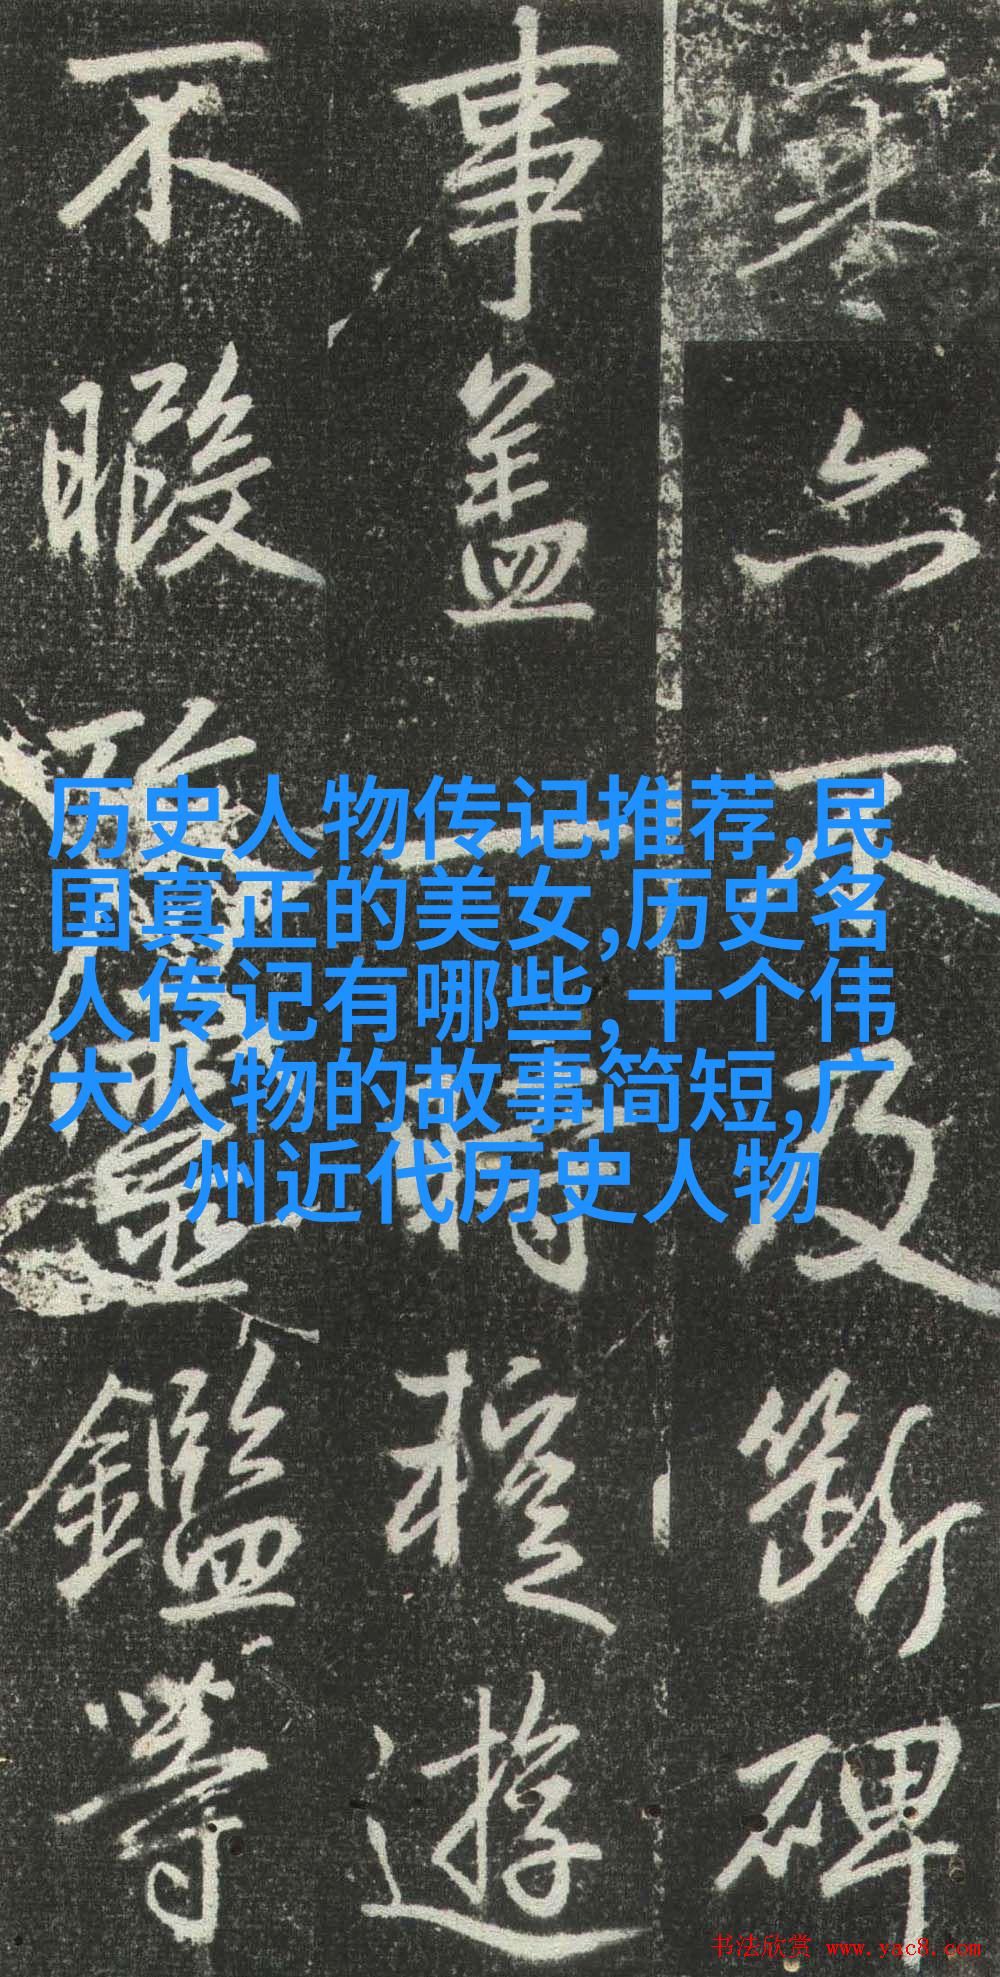 寒亦不及断碑
事盖一时权游
不暇
鑑等
历史人物传记推荐,民
国真正的美女,历史名
人传记有哪些,十个伟
大人物的故事简短,广
州近代历史人物
书法欣赏 www.yac8.com